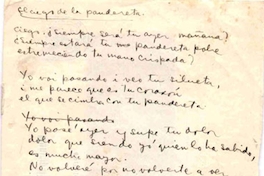 El ciego de la pandereta.
Ciego, ¿siempre será tu ayer mañana?
¿Siempre estará tu pandereta pobre
estremeciendo tu mano crispada?
Yo voi pasando i veo tu silueta,
i me parece que es tu corazón
el que se cimbra con tu pandereta.
Yo voi pasando
Yo pasé ayer y supe tu dolor
dolor que siendo yo quien lo ha sabido,
es mucho mayor.
No volveré por no volverte a ver